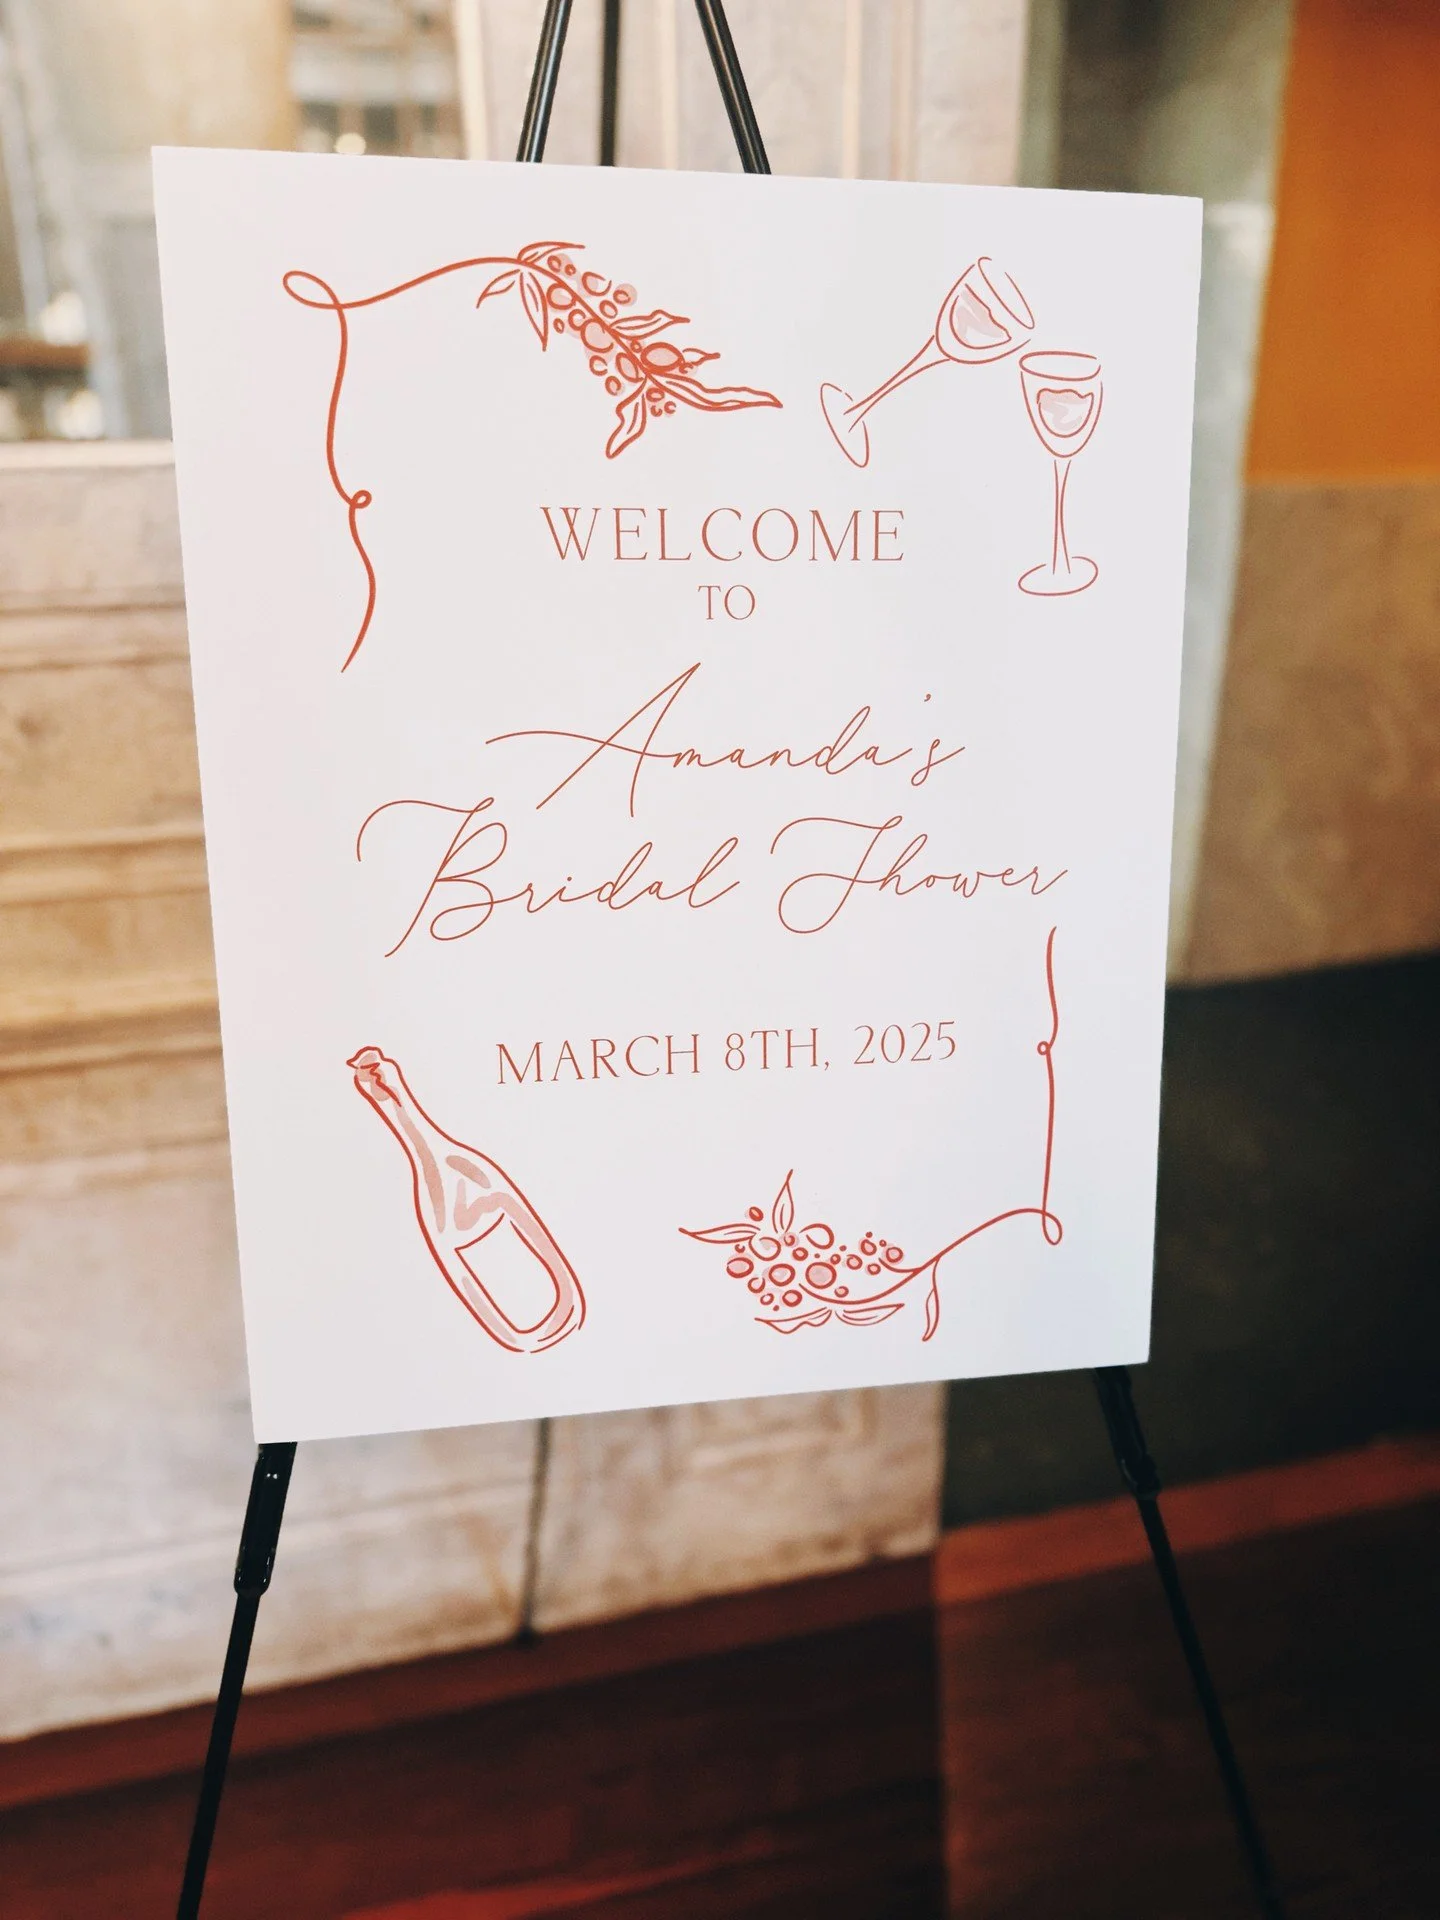 WELCOME
TO
Amanda's
Bridal Shower
MARCH 8TH, 2025